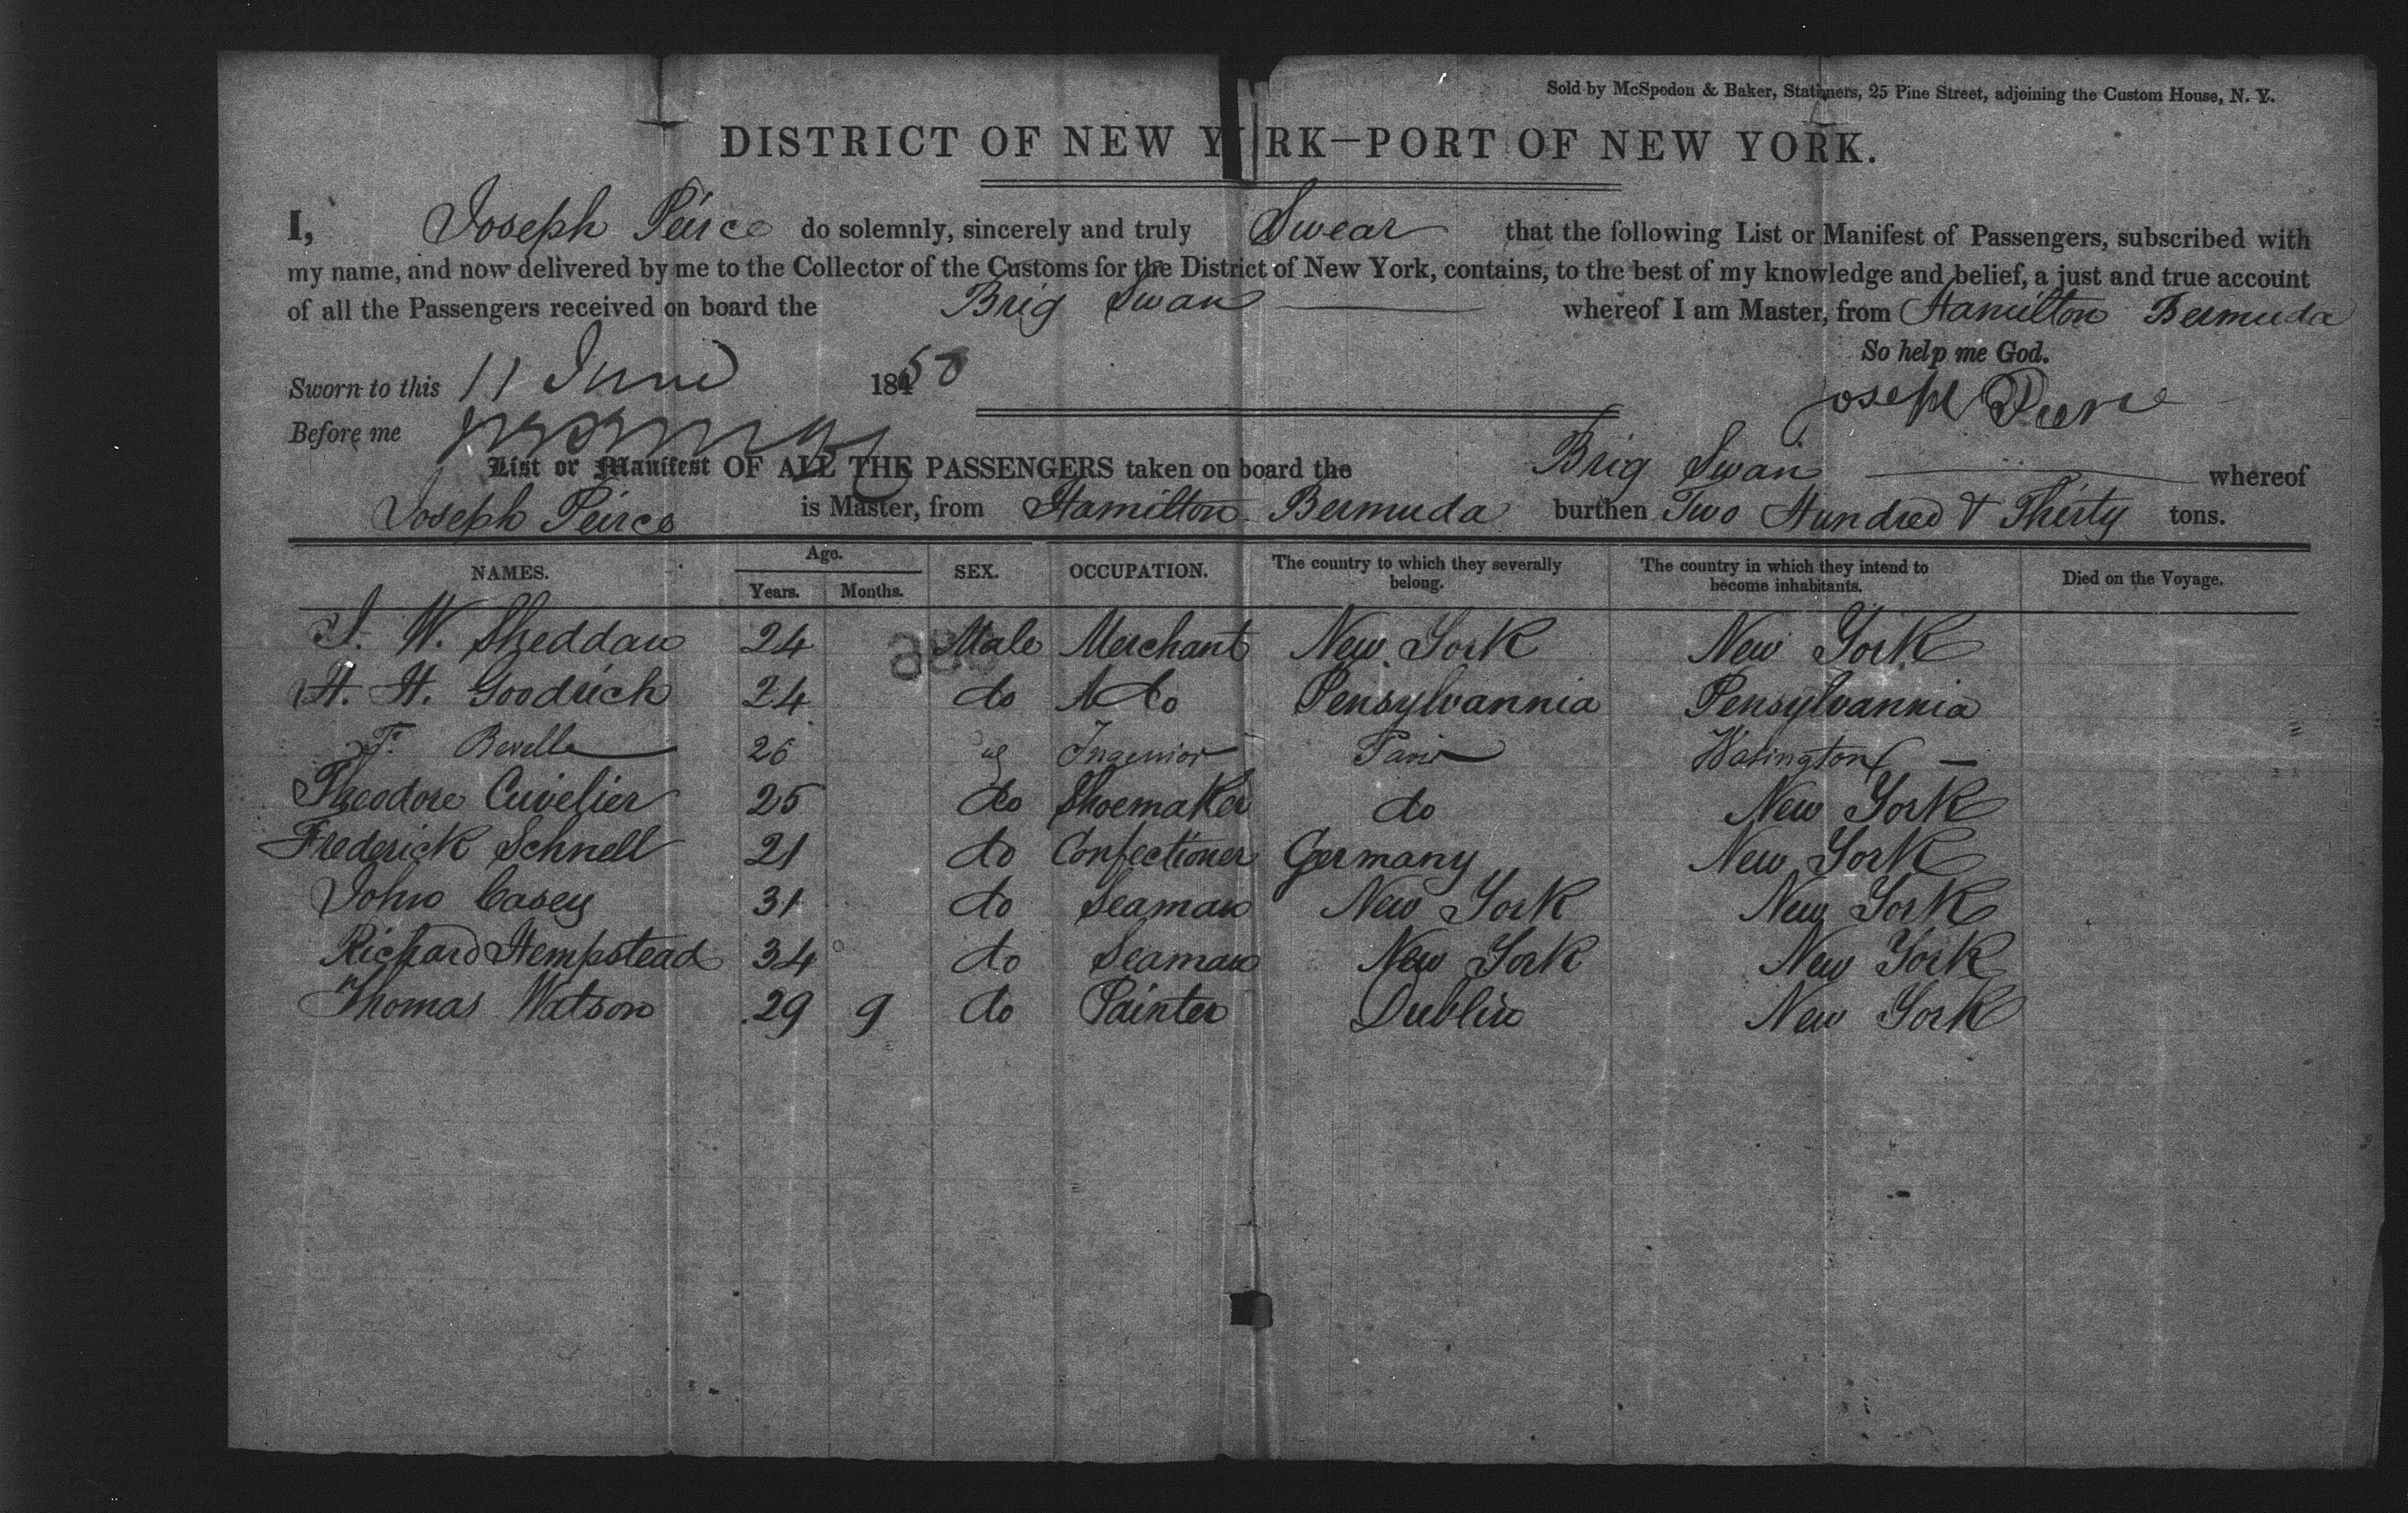 Sold by McSpedon & Baker, Stationers, 25 Pine Street, adjoining the Custom House, N. Y.
DISTRICT OF NEW YORK—PORT OF NEW YORK.
I, Joseph Peirce do solemnly, sincerely and truly Swear that the following List or Manifest of Passengers, subscribed with
my name, and now delivered by me to the Collector of the Customs for the District of New York, contains, to the best of my knowledge and belief, a just and true account
of all the Passengers received on board the Brig Swan whereof I am Master, from Hamilton Bermuda
So help me God.
Sworn to this 11 June 18450
Joseph Peirce
Before me
List or Manifest OF ALL THE PASSENGERS taken on board the Brig Swan whereof
Joseph Peirce is Master, from Hamilton Bermuda burthen Two Hundred & Thirty tons.
NAMES. Age. Years. Months. SEX. OCCUPATION. The country to which they severally belong. The country in which they intend to become inhabitants. Died on the Voyage.
J. W. Sheddan 24 Male Merchant New York New York
H. H. Goodrich 24 do do Pensylvannia Pensylvannia
F. Bevelle 26 Ingenior Paris Wasington
Theodore Cuvelier 25 do Shoemaker do New York
Frederick Schnell 21 do Confectioner Germany New York
John Casey 31 do Seaman New York New York
Richard Hempstead 34 do Seaman New York New York
Thomas Watson 29 9 do Painter Dublin New York